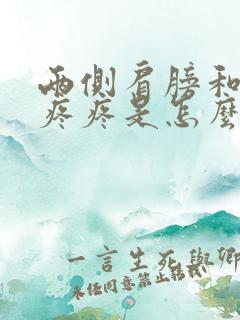 兩側肩膀和
疼疼是怎麼
一言生死與卿
未经同意禁止转载